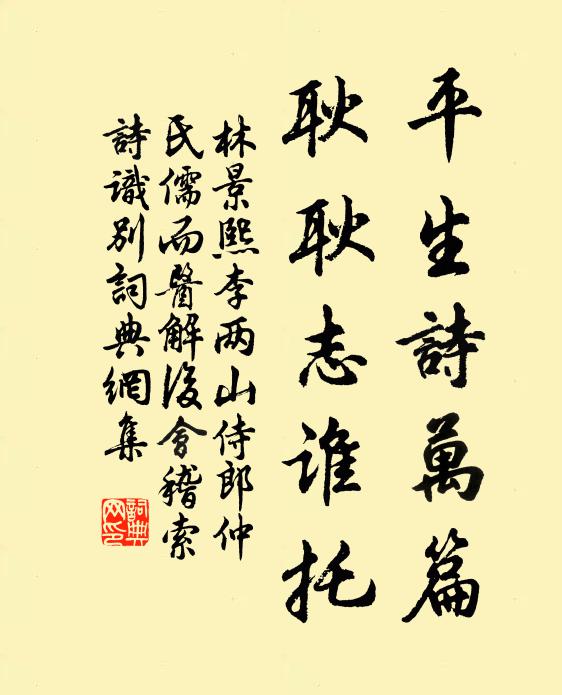 平生詩萬篇
耿耿志谁托
林景熙李两山侍郎仲
氏儒而醫解後會稽索
詩識别詞典網集
詞典网印